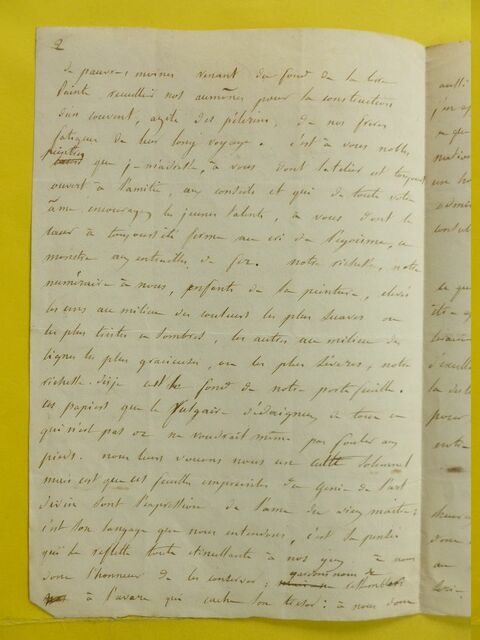 2
de pauvres moines venant du fond de la terre
Sainte recueillir nos aumônes pour la construction
d'un couvent, azile des pélerins, de nos frères
fatigués de leur long voyage. c'est à vous nobles
peintres que je m'adresse, à vous dont l'atelier est toujours
ouvert à l'amitié, aux conseils et qui de toute votre
âme encouragez les jeunes talents, à vous dont le
cœur à toujours été fermé au cri de l'égoïsme, ce
monstre aux entrailles de fer. notre richesse, notre
numéraire à nous, enfants de la peinture, élevés
les uns au milieu des couleurs les plus suaves ou
les plus tristes et sombres, les autres au milieu des
lignes les plus gracieuses, ou les plus sévères, notre
richesse dis-je est le fond de notre portefeuille.
ces papiers que le vulgaire dédaigneux de tout ce
qui n'est pas or ne voudrait même pas fouler aux
pieds. nous leurs vouons nous un culte solennel
mais est que ces feuilles empreintes du génie de l'art
divin sont l'expression de l'ame du vieux maître;
c'est son langage que nous entendons, c'est sa pensée
qui se reflette toute étincellante à nos yeux à nous
donc l'honneur de les conserver; gardons nous de ressembler
à l'avare qui cache son trésor: à nous donc
aussi
j'en ap
ce que
nation
une ho
ce que
d'excell
pour
notre
donc
au